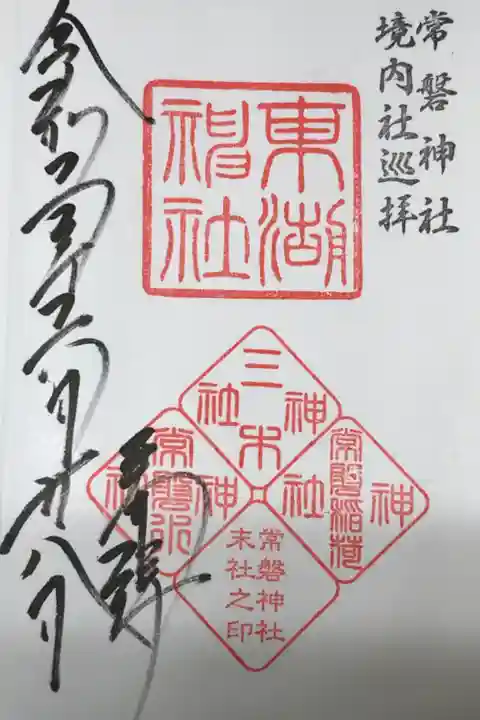 常磐神社
境内社巡拝
東湖
神社
三木
神社
常磐稲荷
神社
常磐
神社
常磐神社
末社之印
奉拝
令和
月廿八日